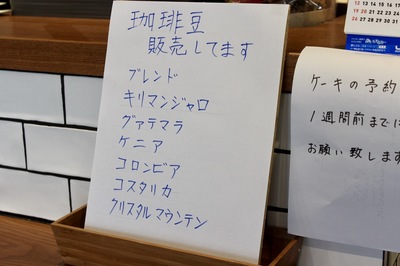 珈琲豆
販売してます
ブレンド
キリマンジャロ
グァテマラ
ケニア
コロンビア
コスタリカ
クリスタルマウンテン
ケーキの予約
1週間前までに
お願い致します